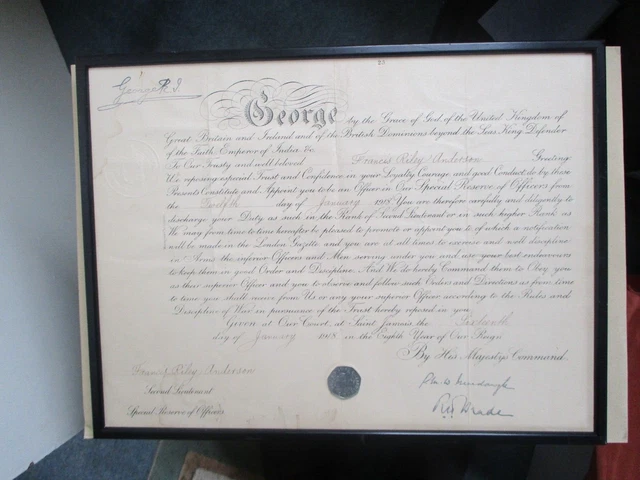 George R.I.
George by the Grace of God, of the United Kingdom of
Great Britain and Ireland and of the British Dominions beyond the Seas King Defender
of the Faith, Emperor of India &c.
To Our Trusty and well beloved Francis Riley Anderson Greeting
We reposing especial Trust and Confidence in your Loyalty Courage and good Conduct do by these
Presents Constitute and Appoint you to be an Officer in Our Special Reserve of Officers from
the Twelfth day of January 1918. You are therefore carefully and diligently to
discharge your Duty as such in the Rank of Second Lieutenant or in such higher Rank as
We may from time to time hereafter be pleased to promote or appoint you to of which a notification
will be made in the London Gazette and you are at all times to exercise and well discipline
in Arms the inferior Officers and Men serving under you and use your best endeavours
to keep them in good Order and Discipline. And We do hereby Command them to Obey you
as their superior Officer and you to observe and follow such Orders and Directions as from time
to time you shall receive from Us or any your superior Officer according to the Rules and
Discipline of War in pursuance of the Trust hereby reposed in you.
Given at Our Court at Saint James's the Sixteenth
day of January 1918. in the Eighth Year of Our Reign
By His Majesty's Command.
Francis Riley Anderson
Second Lieutenant
Special Reserve of Officers